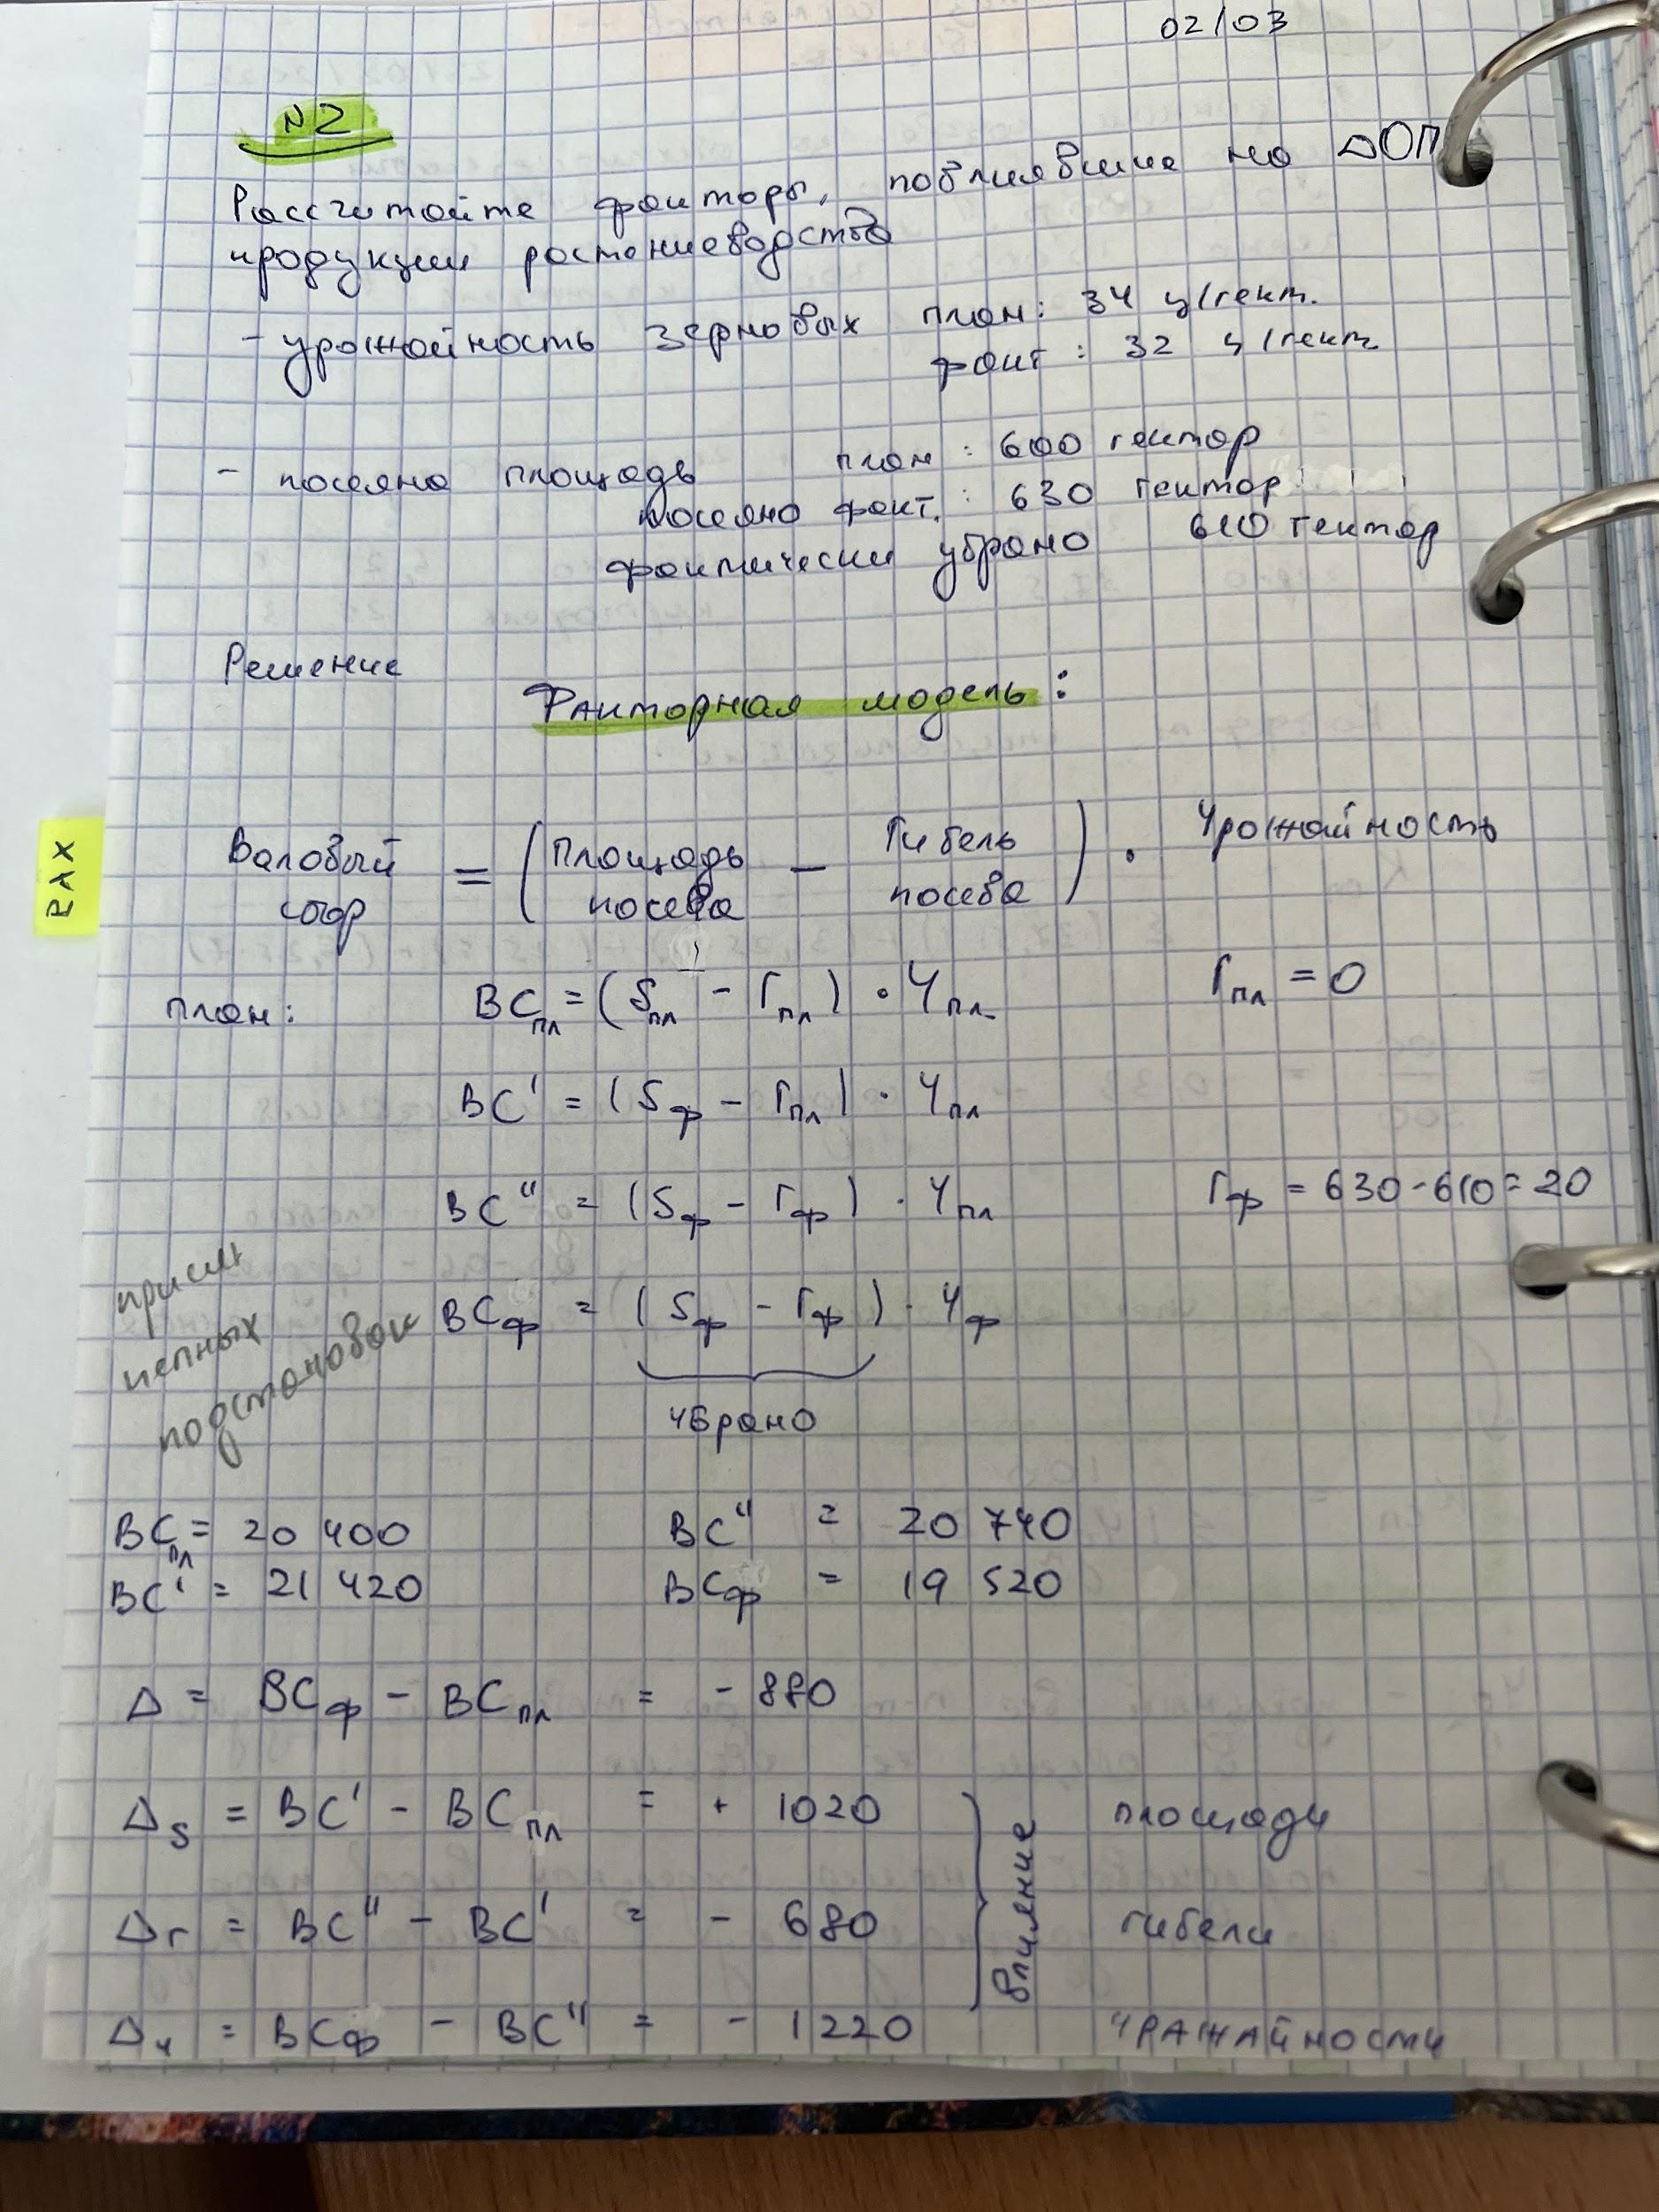 02/03
N2
Рассчитайте факторы, повлиявшие на ΔОП
продукции растениеводства
- урожайность зерновых план: 34 ц/гект.
факт: 32 ц/гект
- посеяно площадь план: 600 гектар
посеяно факт.: 630 гектар
фактически убрано 610 гектар
Решение
Факторная модель:
Валовый сбор = (Площадь посева - Гибель посева) · Урожайность
РАХ
план: ВСпл = (Sпл - Гпл) · Упл Гпл = 0
ВС' = (Sф - Гпл) · Упл
ВС'' = (Sф - Гф) · Упл Гф = 630-610=20
ВСф = (Sф - Гф) · Уф
прием
цепных
подстановок
убрано
ВСпл = 20 400 ВС'' = 20 740
ВС' = 21 420 ВСф = 19 520
Δ = ВСф - ВСпл = - 880
ΔS = ВС' - ВСпл = + 1020 площади
Δг = ВС'' - ВС' = - 680 гибели
влияние
Δу = ВСф - ВС'' = - 1220 уражайности